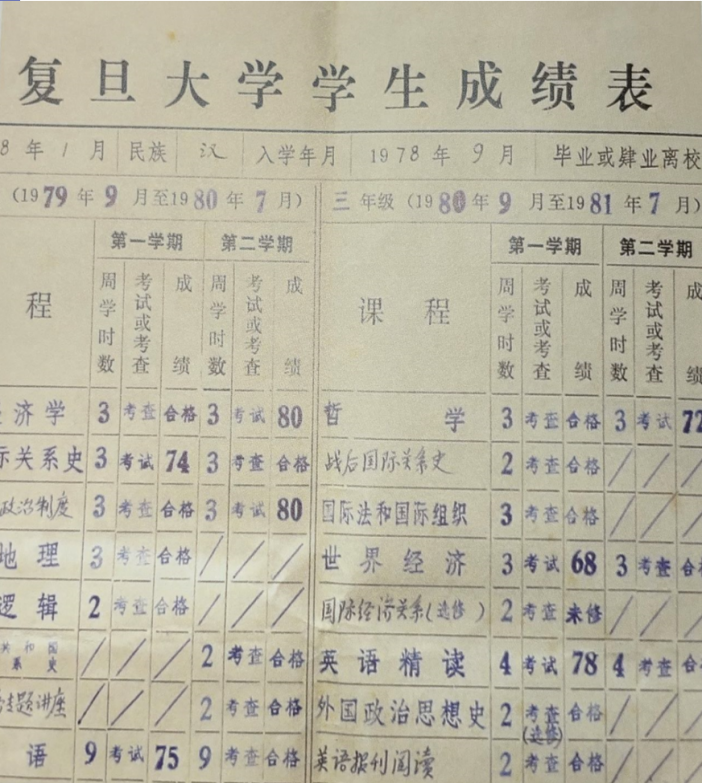 复旦大学学生成绩表
8年1月 民族 汉 入学年月 1978年9月 毕业或肄业离校
(1979年9月至1980年7月) 三年级(1980年9月至1981年7月)
第一学期 第二学期 第一学期 第二学期
程 周学时数 考试或考查 成绩 周学时数 考试或考查 成绩 课程 周学时数 考试或考查 成绩 周学时数 考试或考查 成绩
济学 3 考查 合格 3 考试 80 哲学 3 考查 合格 3 考试 72
关系史 3 考试 74 3 考查 合格 战后国际关系史 2 考查 合格 / / /
政治制度 3 考查 合格 3 考试 80 国际法和国际组织 3 考查 合格 / / /
地理 3 考查 合格 / / / 世界经济 3 考试 68 3 考查 合
逻辑 2 考查 合格 / / / 国际经济关系(选修) 2 考查 未修 / / /
共和国系史 / / / 2 考查 合格 英语精读 4 考试 78 4 考查 合
专题讲座 / / / 2 考查 合格 外国政治思想史 2 考查(选修) 合格 / / /
语 9 考试 75 9 考查 合格 英语报刊阅读 2 考查 合格 / / /